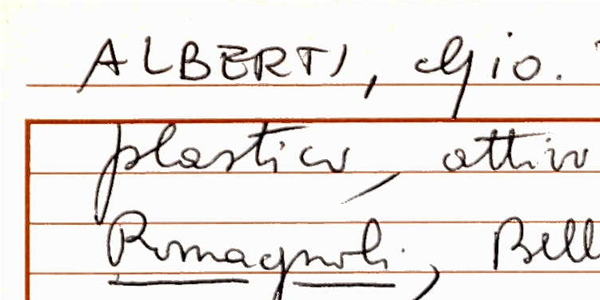 ALBERTI, Gio.
plastico, attivo
Romagnoli, Bell